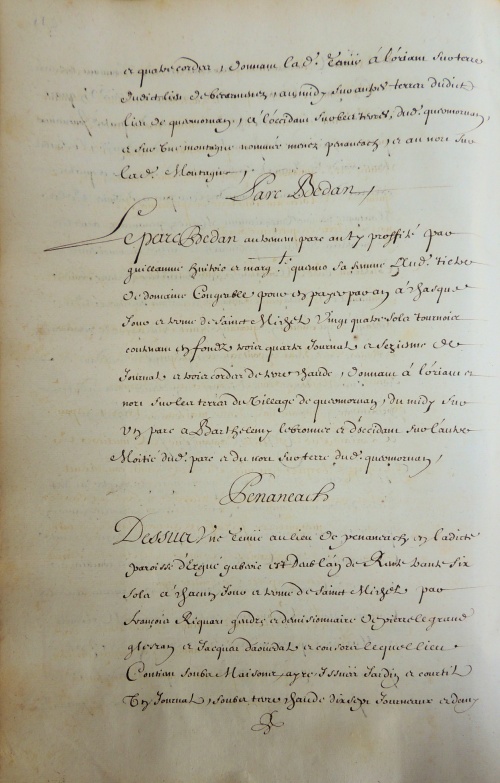 et quatre cordes, donnant lad. tenüe à l'oriant sur terre
dudict lieu de , au midy sur autre terres dudict
lieu de quermornan, et à l'occidant sur les terres, dud. quermornan,
et sur une montagne nommée menez penaneach, et au nort sur
lad. Montagne,
Parc Bedan,
Le parc Bedan autrement parc an ty proffité par
guillaume et marg.te sa femme Aud. tiltre
de domaine Congeable pour en payer par an à chasque
Jour et terme de Sainct Michel Vingt quatre solz tournois
contenant en fondz trois quartz Journal et seziesme de
Journal et trois cordes de terre chaude, donnant à l'oriant et
nort sur les terres du Village de quermornan, du midy sur
Un parc a Barthelemy et d'occidant sur l'autre
Moitié dud. parc et du nort sur terre dud. quermornan,
Penaneach
Dessus Une tenüe au lieu de penaneach en ladicte
paroisse d'Ergué gaberic est deub l'an de Rente trante six
solz à chacun Jour et terme de Sainct Michel par
François Riquart gendre et démissionnaire de pierre le grand
et Jacques et consors lequel lieu
Contien soubz Maisons, ayre, Issues Jardin et courtil
Un Journal, soubz terre chaude dix sept Journeaux et demy